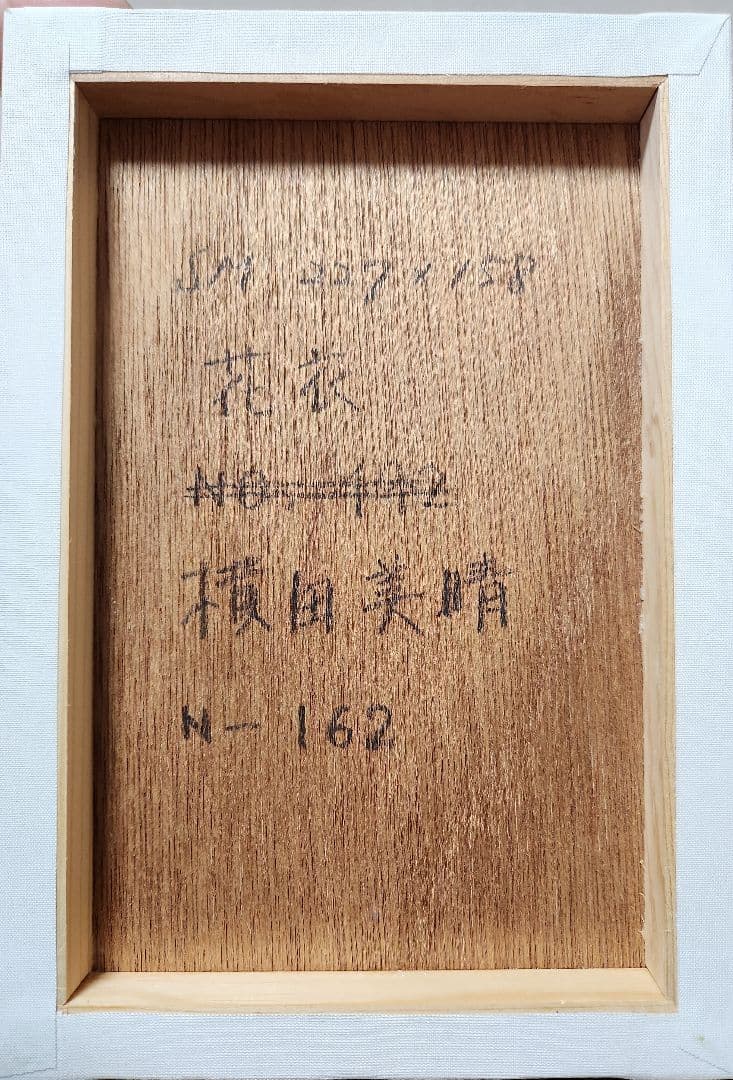 SM 227×158
花衣
横田美晴
N-162